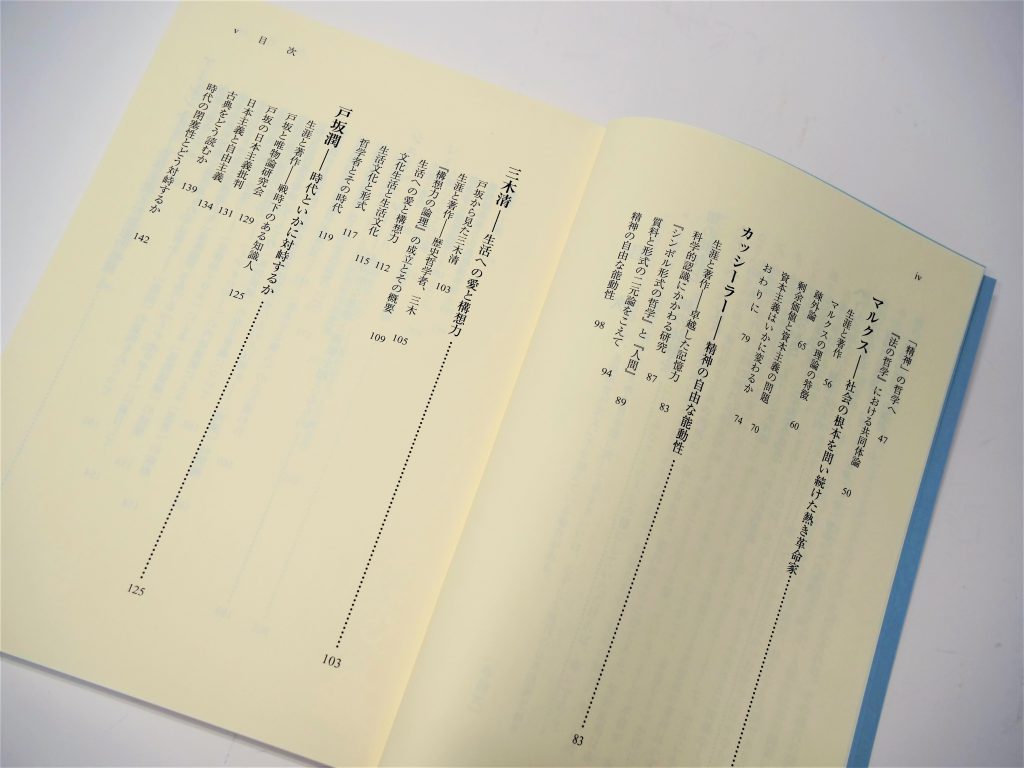 iv
「精神」の哲学へ 47
『法の哲学』における共同体論 50
マルクス――社会の根本を問い続けた熱き革命家……
生涯と著作 56
マルクスの理論の特徴 60
疎外論 65
剰余価値と資本主義の問題 70
資本主義はいかに変わるか 74
おわりに 79
カッシーラー――精神の自由な能動性…… 83
生涯と著作――卓越した記憶力 83
科学的認識にかかわる研究 87
『シンボル形式の哲学』と『人間』 89
質料と形式の二元論をこえて 94
精神の自由な能動性 98
v 目次
三木清――生活への愛と構想力…… 103
戸坂から見た三木清 103
生涯と著作――歴史哲学者、三木 105
『構想力の論理』の成立とその概要 109
生活への愛と構想力 112
文化生活と生活文化 115
生活文化と形式 117
哲学者とその時代 119
戸坂潤――時代といかに対峙するか…… 125
生涯と著作――戦時下のある知識人 125
戸坂と唯物論研究会 129
戸坂の日本主義批判 131
日本主義と自由主義 134
古典をどう読むか 139
時代の閉塞性とどう対峙するか 142